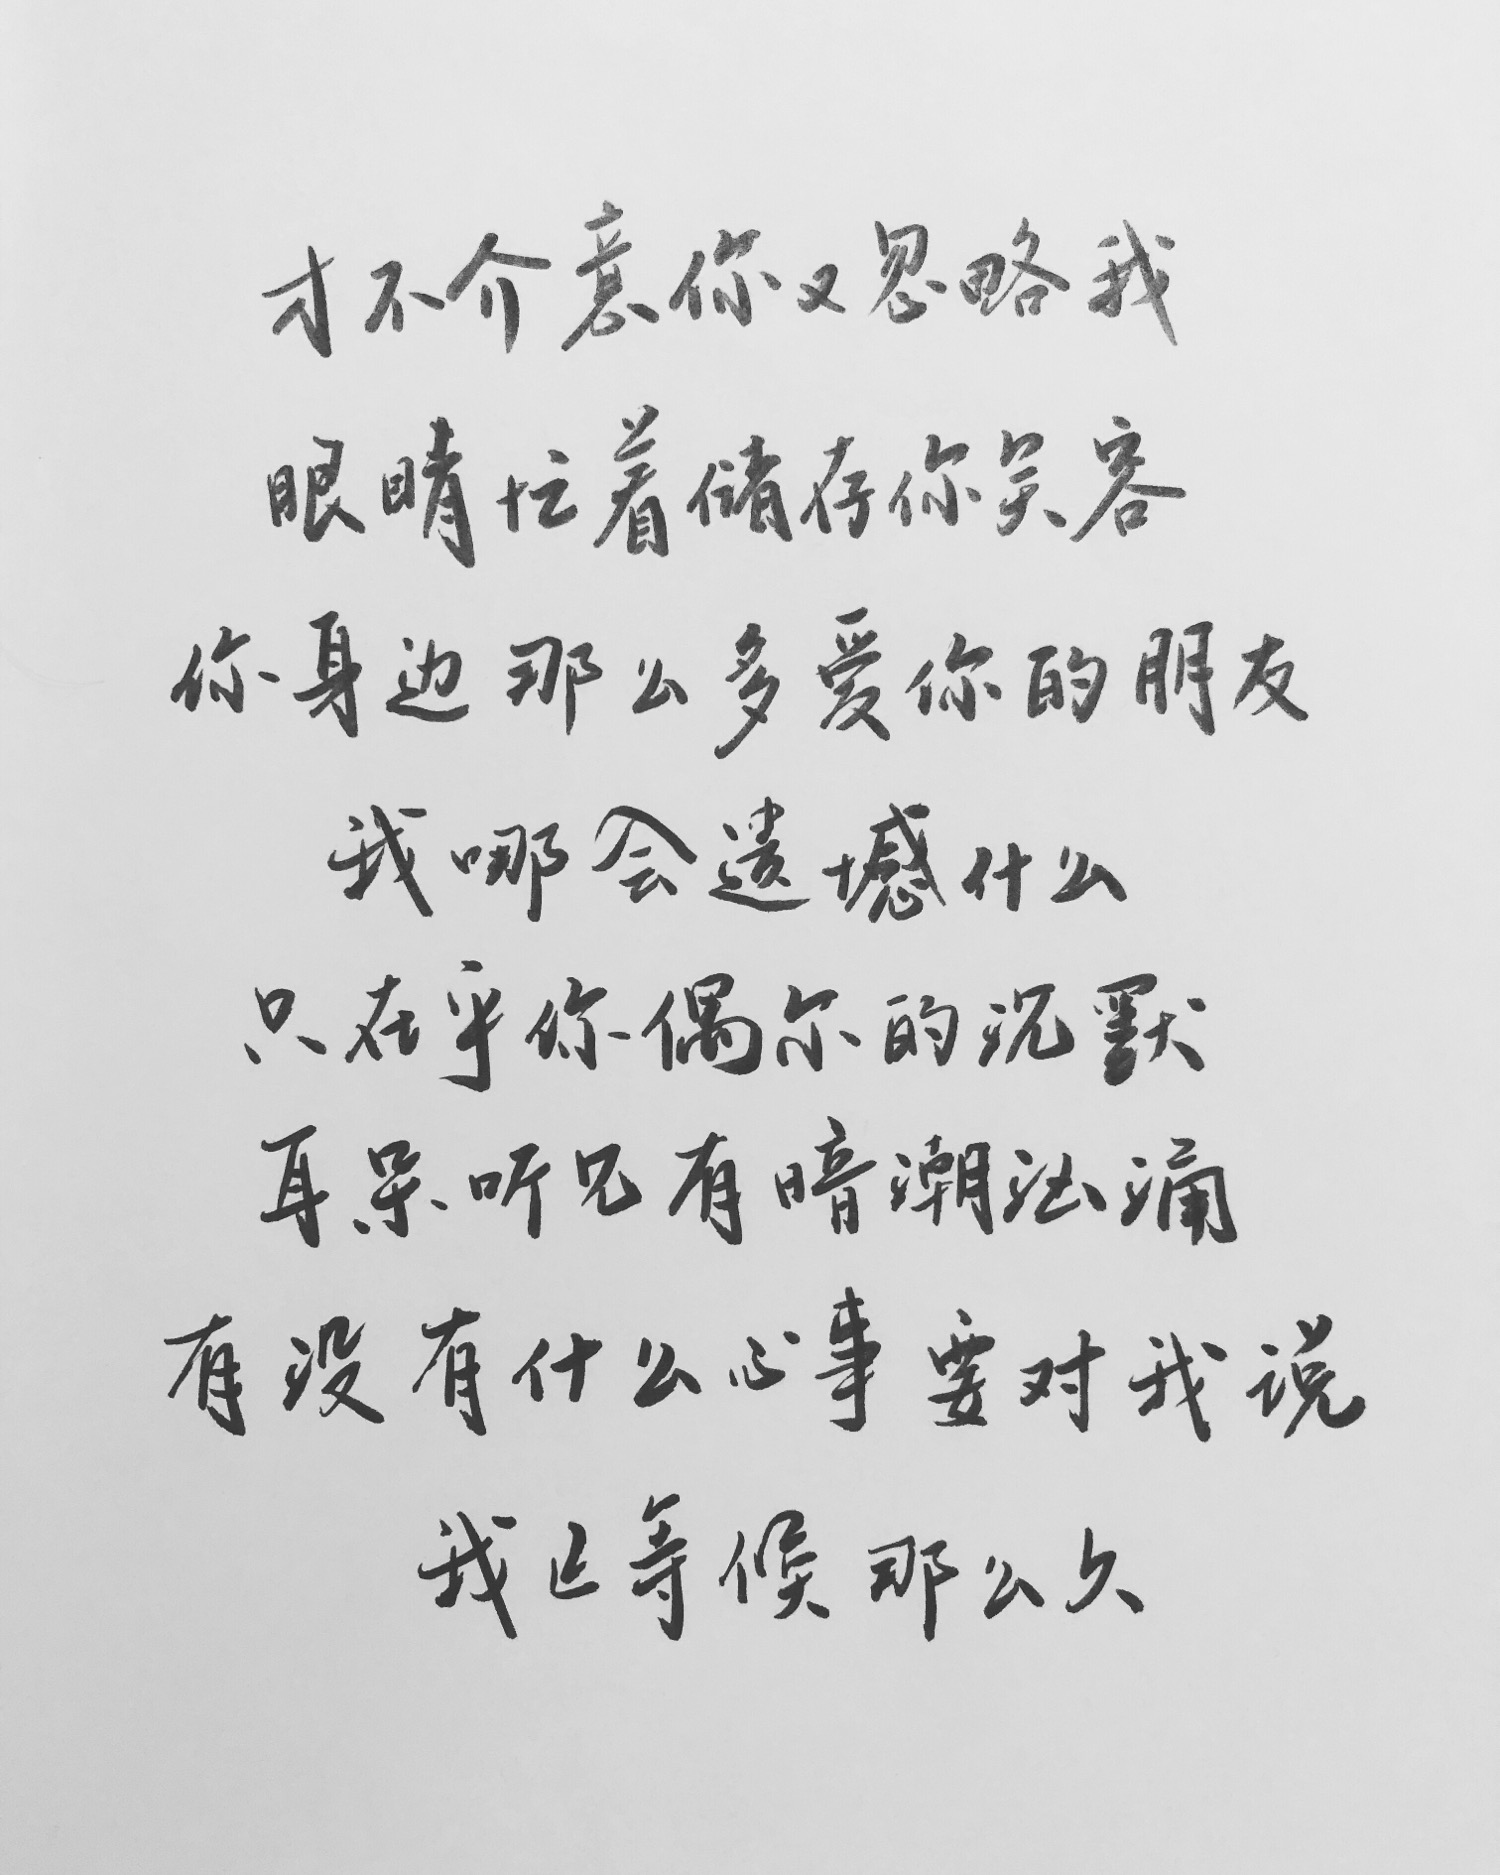 才不介意你又忽略我
眼睛忙着储存你笑容
你身边那么多爱你的朋友
我哪会遗憾什么
只在乎你偶尔的沉默
耳朵听见有暗潮汹涌
有没有什么心事要对我说
我已等候那么久